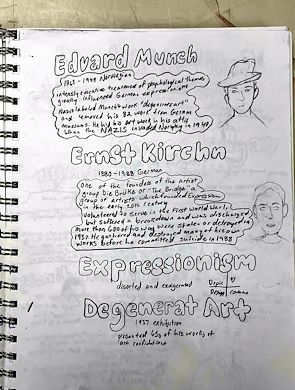 Edvard Munch
1863 - 1944 Norwegian
intensly evocative treatment of psychological themes
greatly influenced German expressionism
Nazis labeled Munch's work "degenerate art"
and removed his 82 work from German
museums. He hid his art work in his attic
when the NAZIS invaded Norway in 1940
Ernst Kirchn
1880 - 1938 German
One of the founders of the artist
group Die Brüke or "The Bridge" a
group of artists which founded Expression
in the early 20th century
Volunteered to serve in the First World War,
but suffered a breakdown and was discharged
more than 600 of his way were spoken or destroyed in
1937. He gathered and destroyed many of his own
works before he committed suicide in 1938
Expressionism
distorted and exagerated
Degenerat Art
1937 exhibition
presented 650 of his works of
art confiscation